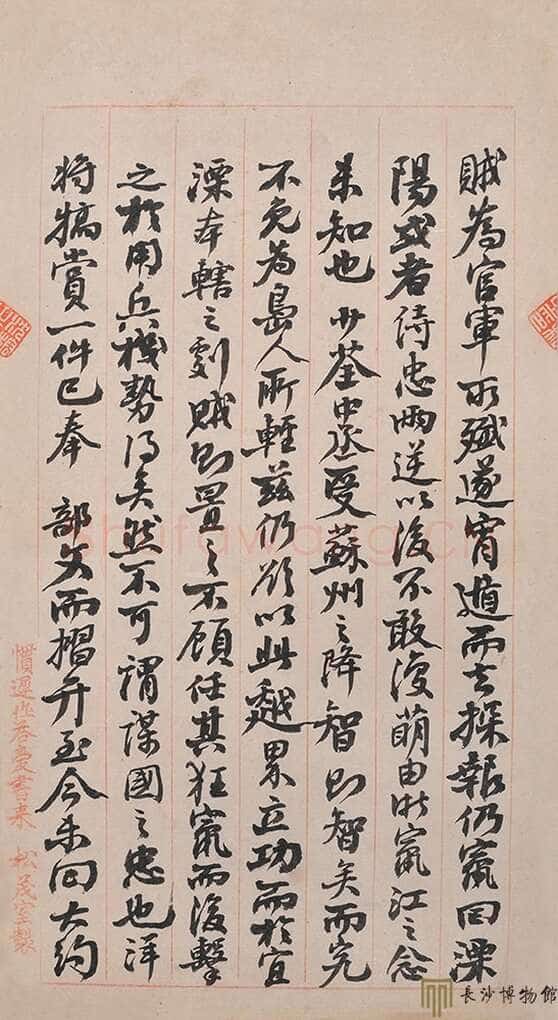 賊為官軍所殲遂宵遁而去探報仍竄回溧
陽或者侍忠兩逆以後不敢復萌由浙竄江之念
未知也少荃中丞受蘇州之降智則智矣而究
不免為島人所輕茲仍欲以此越界立功而於宜
溧本轄之劇賊則置之不顧任其狂竄而後擊
之於用兵機勢得矣然不可謂謀國之忠也洋
將犒賞一件已奉 部文而摺弁至今未回大約
慣遲作答愛書來 松茂室製
長沙博物館